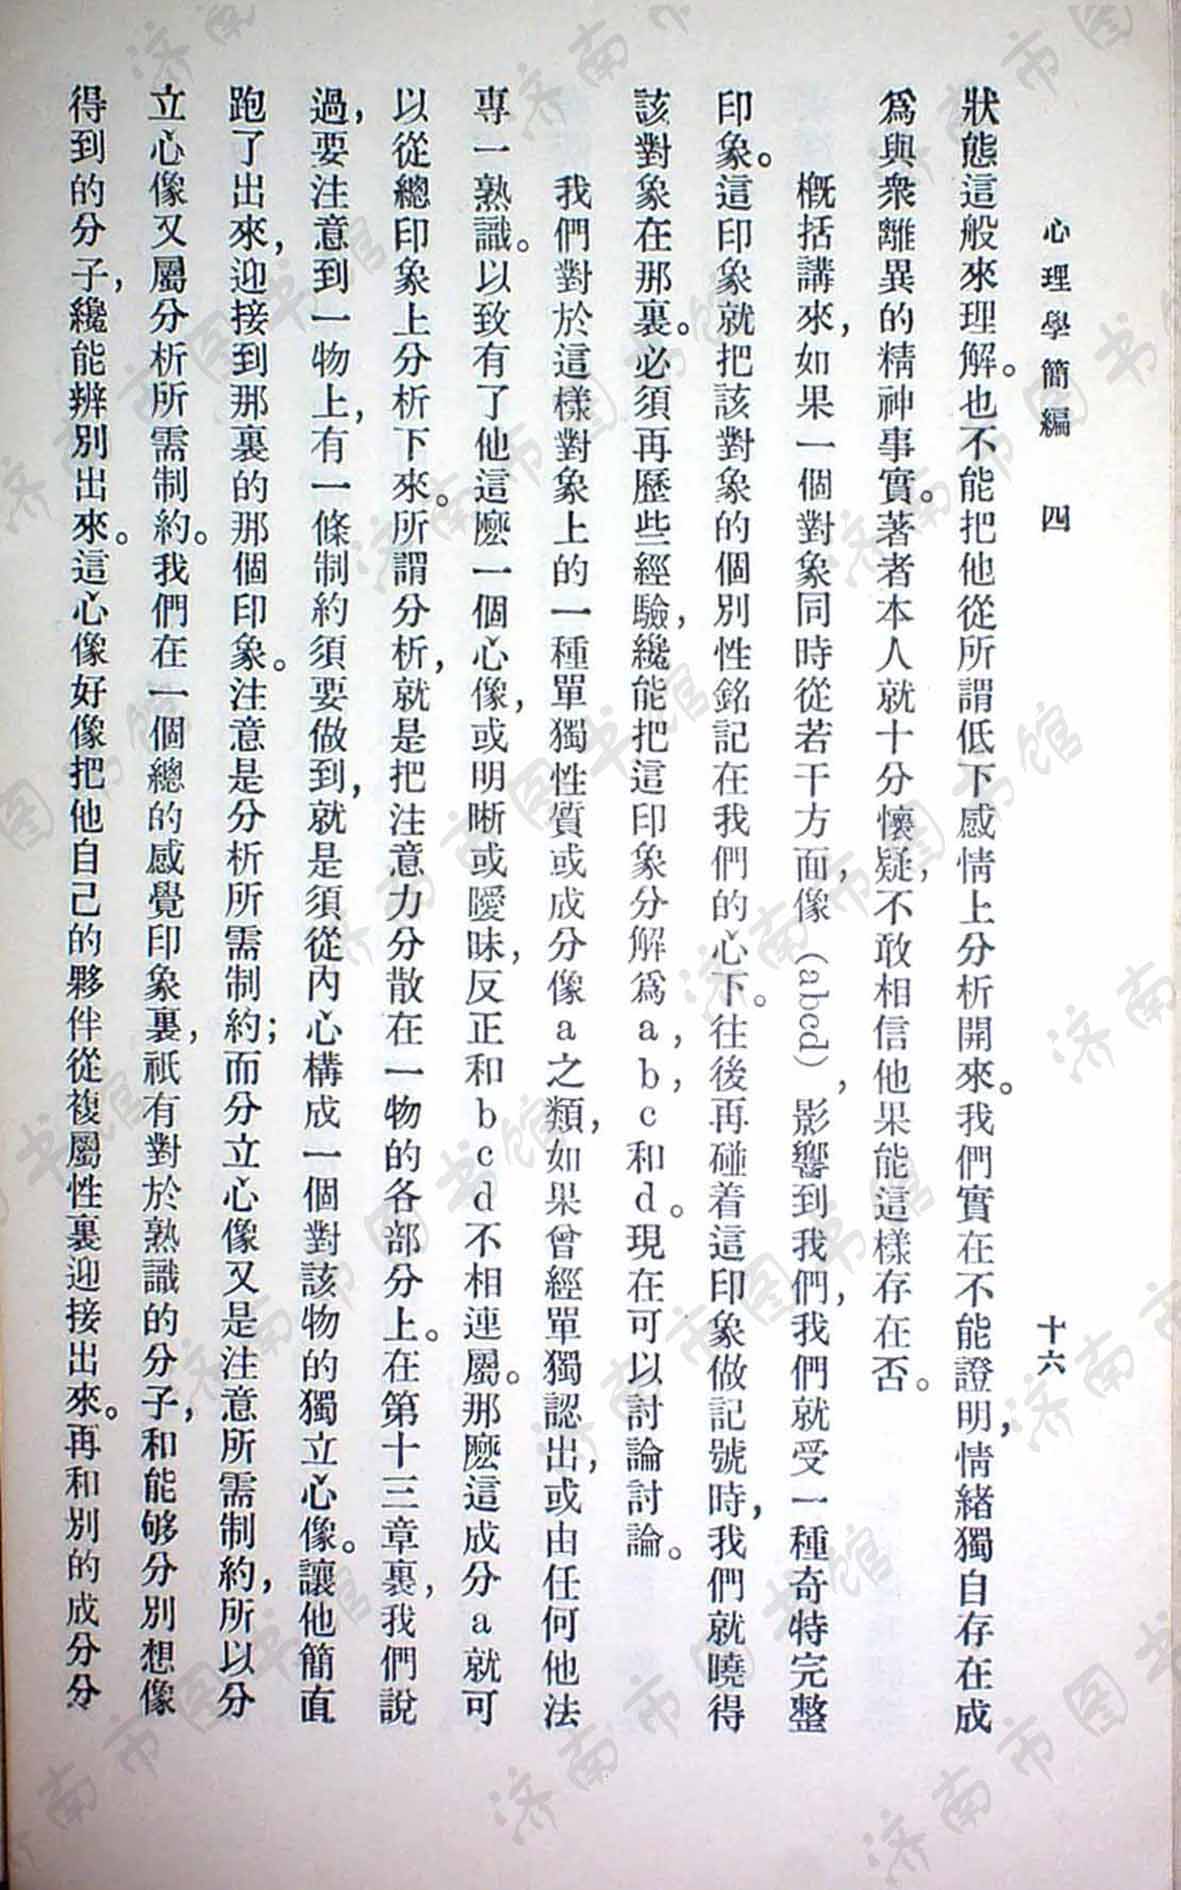 心理學簡編　四　十六
狀態這般來理解。也不能把他從所謂低下感情上分析開來。我們實在不能證明，情緒獨自存在成
爲與衆離異的精神事實。著者本人就十分懷疑，不敢相信他果能這樣存在否。
概括講來，如果一個對象同時從若干方面，像（abcd），影響到我們，我們就受一種奇特完整
印象。這印象就把該對象的個別性銘記在我們的心下。往後再碰着這印象做記號時，我們就曉得
該對象在那裏。必須再歷些經驗，纔能把這印象分解爲a，b，c和d。現在可以討論討論。
我們對於這樣對象上的一種單獨性質或成分像a之類，如果曾經單獨認出，或由任何他法
專一熟識。以致有了他這麼一個心像，或明晰或曖昧，反正和bcd不相連屬。那麼這成分a就可
以從總印象上分析下來。所謂分析，就是把注意力分散在一物的各部分上。在第十三章裏，我們說
過，要注意到一物上，有一條制約須要做到，就是須從內心構成一個對該物的獨立心像。讓他簡直
跑了出來，迎接到那裏的那個印象。注意是分析所需制約；而分立心像又是注意所需制約，所以分
立心像又屬分析所需制約。我們在一個總的感覺印象裏，祇有對於熟識的分子，和能够分別想像
得到的分子，纔能辨別出來。這心像好像把他自己的夥伴從複屬性裏迎接出來。再和別的成分分
济南市图书馆